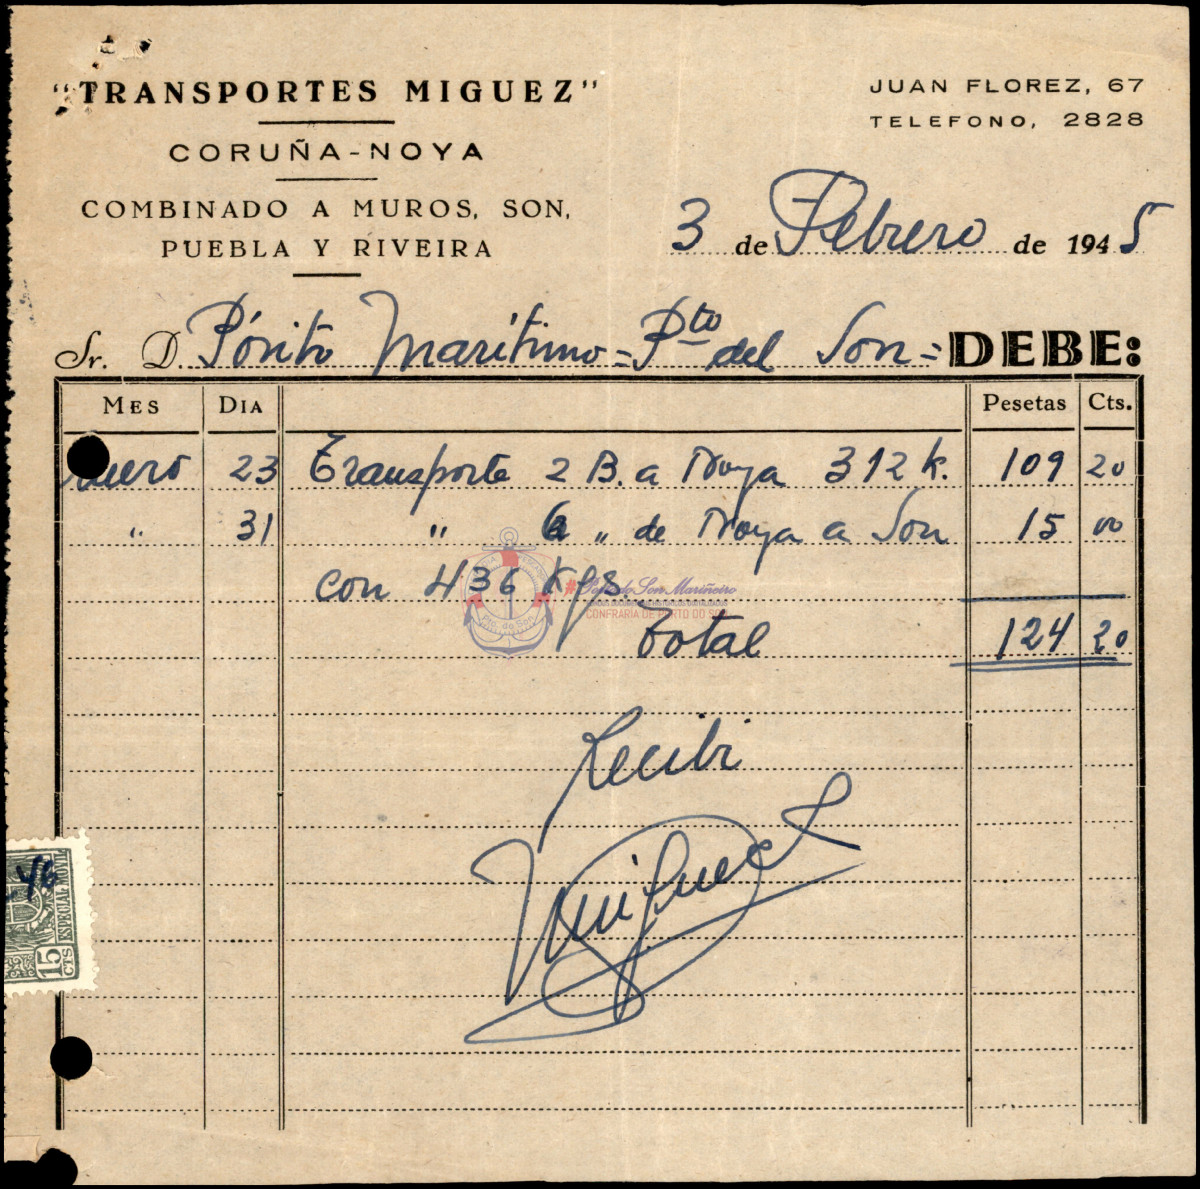 "TRANSPORTES MIGUEZ"
CORUÑA-NOYA
COMBINADO A MUROS, SON,
PUEBLA Y RIVEIRA
JUAN FLOREZ, 67
TELEFONO, 2828
3 de Febrero de 1945
Sr. D. Pósito Marítimo = Pto del Son = DEBE:
MES DIA Pesetas Cts.
Enero 23 Transporte 2 B. a Noya 312 k. 109 20
" 31 " " de Noya a Son 15 00
con 436 Kgs.
Total 124 20
Recibi
Miguez
15 CTS ESPECIAL MOVIL
Pto. do Son
Porto do Son Mariñeiro
CONFRARÍA DE PORTO DO SON